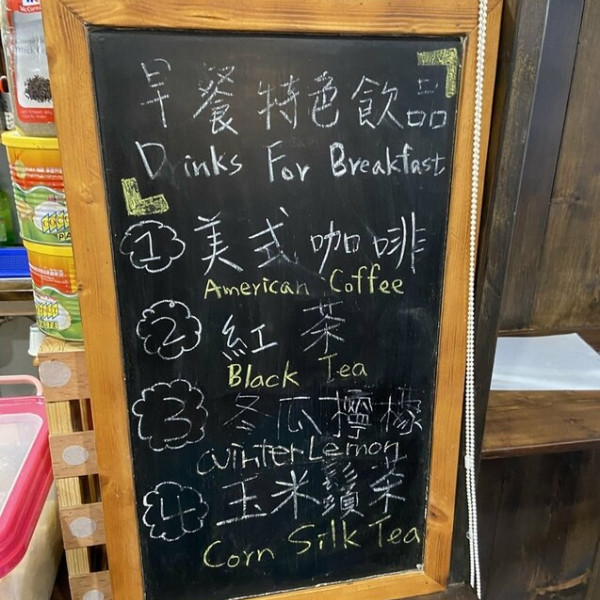 早餐特色飲品
Drinks For Breakfast
1 美式咖啡
American Coffee
2 紅茶
Black Tea
3 冬瓜檸檬
Winter Lemon
4 玉米鬚茶
Corn Silk Tea